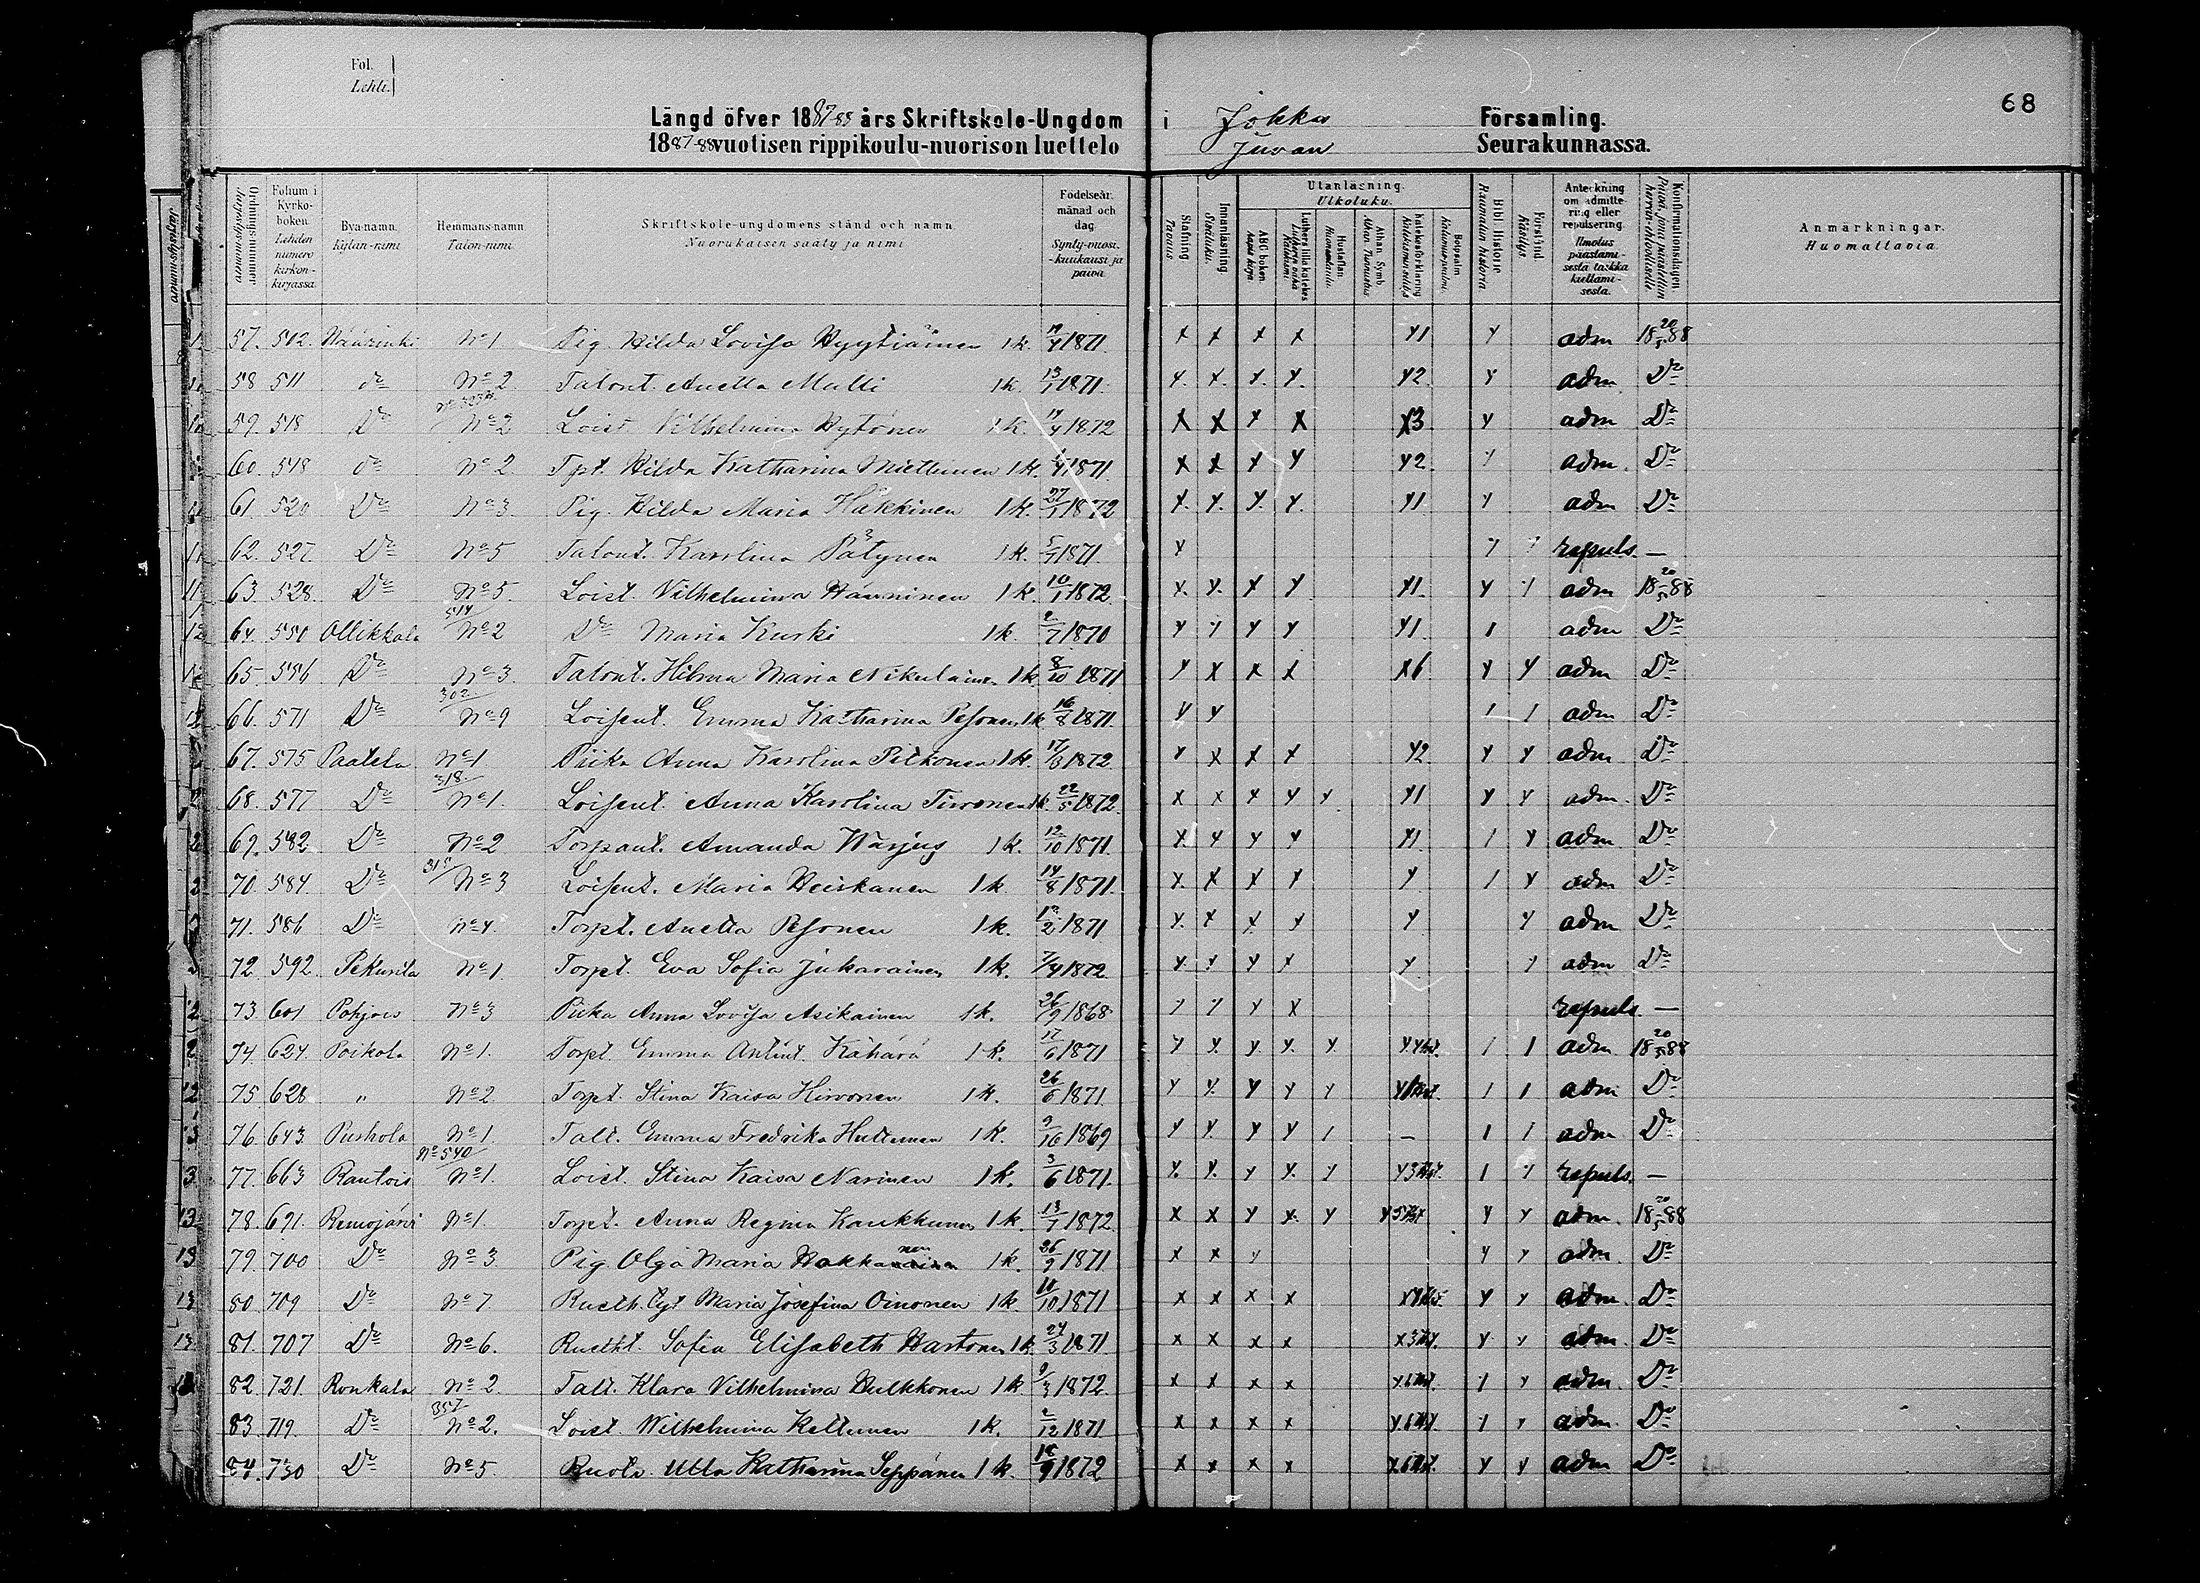 Fol.
Lehti.
68
Längd öfver 1887-88 års Skriftskole-Ungdom i Jokkas Församling.
1887-88 vuotisen rippikoulu-nuorison luettelo Juvan Seurakunnassa.
Ordningsnummer. Järjestysnumero
Folium i Kyrko-boken. Lehden numero kirkon-kirjassa.
Bya-namn. Kylän-nimi
Hemmans-namn Talon-nimi.
Skriftskole-ungdomens stånd och namn Nuorukaisen sääty ja nimi
Födelseår, månad och dag. Synty-vuosi, -kuukausi ja päivä.
Stafning Tavaus
Innanläsning Sisäluku.
Utanläsning. Ulkoluku.
ABC boken. Aapis kirja.
Luthers lilla katekes Lutherin vähä Katekism.
Hustaflan. Huoneentaulu.
Athan. Symb. Athan. Tunnustus
Katekesförklaring Katekismus selitys
Botpsalm. Katumuspsalmi.
Bibl. Historie Raamatun historia
Förstånd Käsitys.
Anteckning om admitte-ring eller repulsering. Ilmoitus päästämi-sestä taikka kieltämi-sestä.
Konfirmationsdagen
Anmärkningar. Huomattavia.
57. 502. Näärinki No 1 Pig. Hilda Lovisa Hyytiäinen 1 k. 19/4 1871. x x x x y1 y adm 18 20/5 88
58 511 do No 2 Talont. Anetta Multi 1 k. 13/1 1871. y. x. y. y. y2 y adm Do
59. 518 Do No 2 Loist. Vilhelmina Hytönen 1 k. 19/4 1872 x x y x x3 y adm Do
60. 548 do No 2 Tpt. Hilda Katharina Miettinen 1 k. 1871. x x y y y2 y adm. Do
61. 520 Do No 3. Pig. Hilda Maria Häkkinen 1 k. 27/1 1872 y. y. y. y. y1 y adm Do
62. 527. Do No 5 Talont. Karolina Pätynen 1 k. 5/7 1871. y y y repuls. —
63. 528. Do No 5. Loist. Vilhelmina Hänninen 1 k. 10/1 1872. x. y. x y y1. y y adm 18 20/5 88
64. 550 Ollikkala 514 No 2 Do Maria Kurki 1 k. 2/7 1870 y y y y y1. 1 adm Do
65. 556 Do No 3. Talont. Hilma Maria Nikulainen 1 k. 8/10 1871 y x x x x6 y y adm Do
66. 571 Do 302 No 9 Loisent. Emma Katharina Pesonen 1 k 16/8 1871. y y 1 1 adm Do
67. 575 Paatela No 1 Piika Anna Karolina Pitkonen 1 k. 17/3 1872. y x x x y2 y y adm. Do
68. 577 Do 318. No 1. Loisent. Anna Karolina Tiironen 1 k. 22/5 1872. x x y y y y1 y y adm. Do
69. 582. Do No 2 Torpant. Amanda Warjus 1 k. 12/10 1871. x y y y y1 1 y adm Do
70. 584. Do 315 No 3 Loisent. Maria Heiskanen 1 k 14/8 1871. x. x x y y 1 y adm Do
71. 586 Do No 4. Torpt. Anetta Pesonen 1 k. 1871 y. x x y y y adm Do
72 592. Pekurila No 1. Torpt. Eva Sofia Jukarainen 1 k. 7/4 1872 y y y x y y adm Do
73 601 Pohjois No 3 Piika Anna Lovisa Asikainen 1 k. 26/9 1868 y y y x repuls. —
74. 624. Poikola No 1. Torpt. Emma Antint. Kähärä 1 k. 17/6 1871 y y. y. y. y. 1 1 adm 18 20/5 88
75 628 " No 2 Torpt. Stina Kaisa Hirvonen 1 k. 26/6 1871. y y. y y y 1 1 adm Do
76. 643. Puskola No 1. Talt. Emma Fredrika Huttunen 1 k. 9/10 1869 y y. y y 1 — 1 1 adm Do
77. 663 Rantois No 540 No 1. Loist. Stina Kaisa Narinen 1 k. 3/6 1871. y. y. y y. y 1 y repuls. —
78. 691. Remojärvi No 1. Torpt. Anna Regina Kaukkunen 1 k. 13/7 1872. x x y x. y y y adm. 18 20/5 88
79. 700 Do No 3 Pig Olga Maria Hokkanen 1 k. 26/9 1871 x x y y y adm. Do
80. 709 Do No 7 Maria Josefina Oinonen 1 k. 11/10 1871 x x x x y y adm. Do
81. 707 Do No 6. Sofia Elisabeth Hartonen 1 k. 24/3 1871. x x x x y y adm. Do
82. 721. Ronkala No 2. Talt. Klara Vilhelmina Hulkkonen 1 k. 1872. x x x x 1 y adm. Do
83. 719. Do 357 No 2. Loist. Wilhelmina Kettunen 1 k. 2/12 1871 x x x x y y adm. Do
84. 730 Do No 5. Ulla Katharina Seppänen 1 k. 1872 x x x x y y adm Do